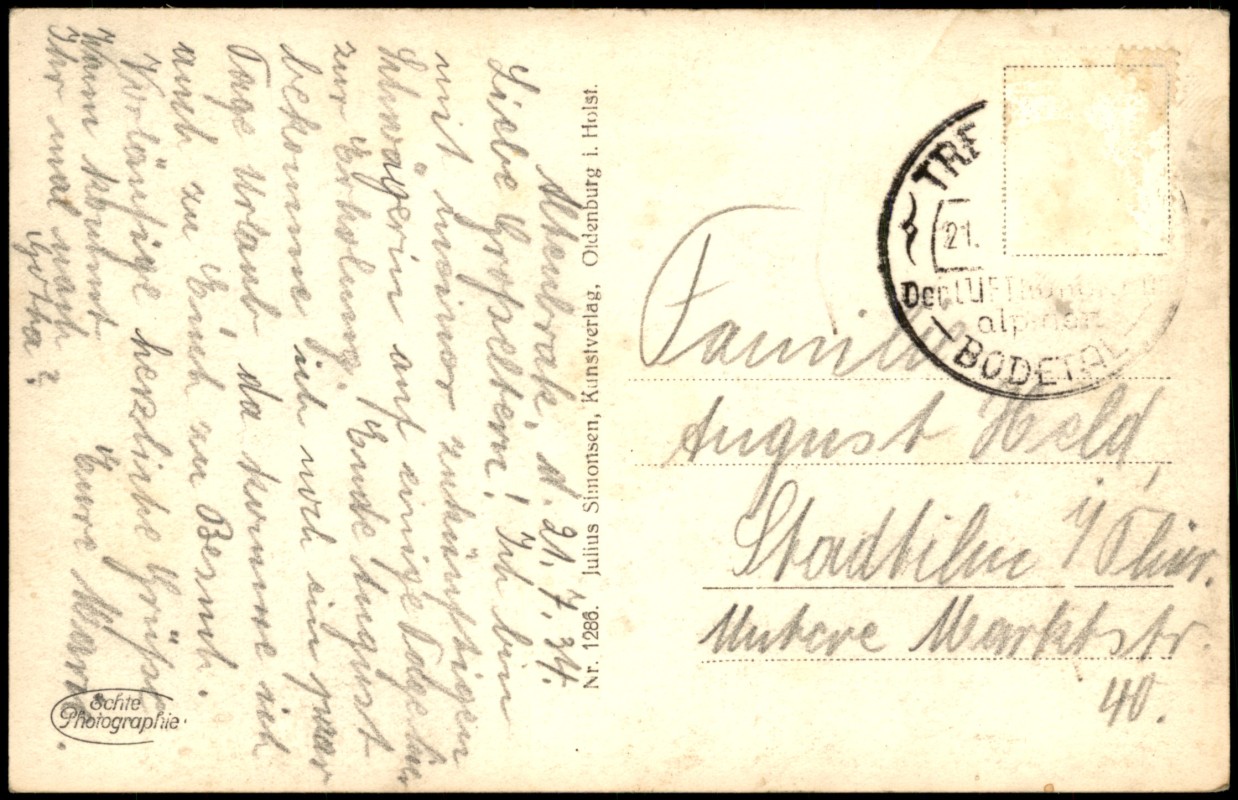 Altenbrak, d. 21.7.34.
Liebe Großeltern! Ich bin
mit meiner zukünftigen
Schwägerin auf einige Tage hier
zur Erholung. Ende August
bekomme ich noch ein paar
Tage Urlaub, da komme ich
auch zu Euch zu Besuch.
Vorläufige herzliche Grüße
Eure
Wann kommt
Ihr mal nach
Gotha?
Nr. 1286. Julius Simonsen, Kunstverlag, Oldenburg i. Holst.
Echte
Photographie
TRE
21.
Der
alpinen
BODETAL
Familie
August Held,
Stadtilm i/Thür.
Untere Marktstr.
40.